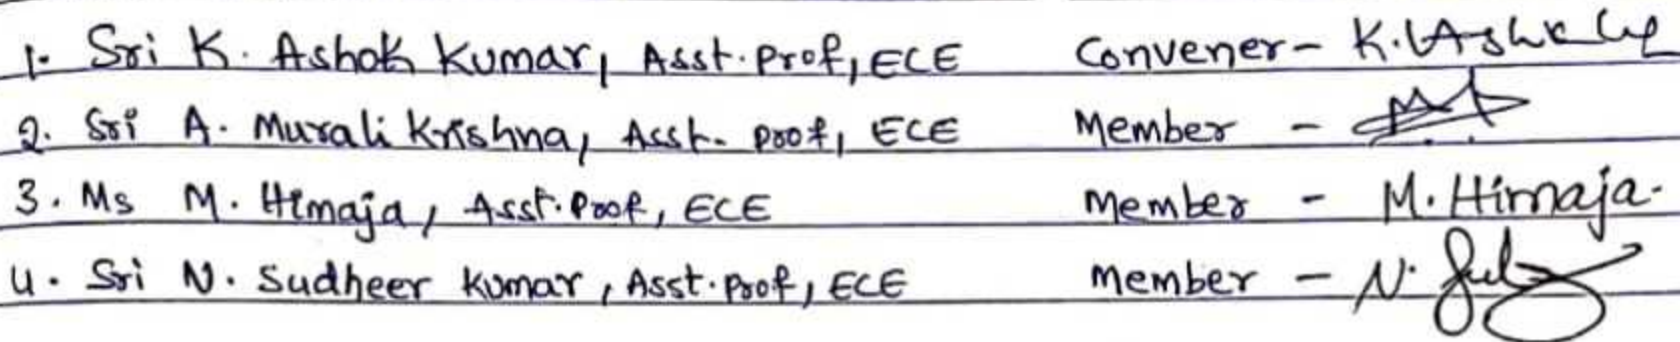 1. Sri K. Ashok Kumar, Asst. Prof, ECE Convener - K. Ashok
2. Sri A. Murali Krishna, Asst. Prof, ECE Member -
3. Ms M. Himaja, Asst. Prof, ECE Member - M. Himaja.
4. Sri N. Sudheer Kumar, Asst. Prof, ECE Member - N.